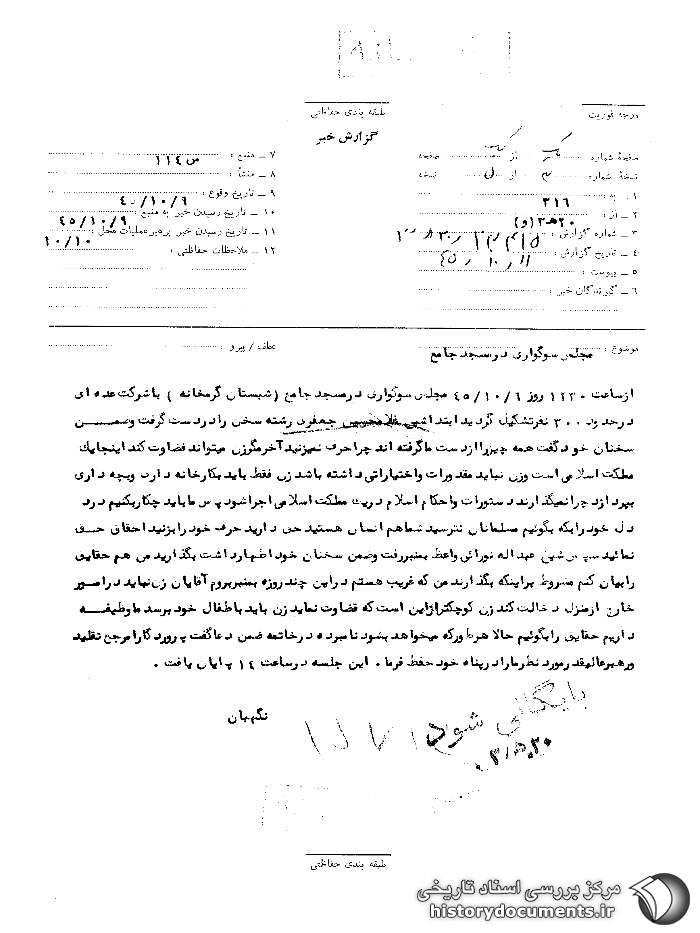 طبقه بندی حفاظتی
درجه فوریت
گزارش خبر
صفحهٔ شماره : یک از یک صفحه
نسخهٔ شماره : از نسخه
۱ ـ به : ۳۱۶
۲ ـ از : ۲۰ هـ ۳ (و)
۳ ـ شماره گزارش :
۴ ـ تاریخ گزارش : ۱۱ ر ۱۰ ر ۴۵
۵ ـ پیوست :
۶ ـ گیرندگان خبر :
۷ ـ منبع : س ۱۱۴
۸ ـ منشأ :
۹ ـ تاریخ وقوع : ۴۵/۱۰/۹
۱۰ ـ تاریخ رسیدن خبر به منبع :
۱۱ ـ تاریخ رسیدن خبر برهبر عملیات محل : ۴۵/۱۰/۹
۱۲ ـ ملاحظات حفاظتی : ۱۰/۱۰
موضوع : مجلس سوگواری در مسجد جامع
عطف / پیرو :
از ساعت ۱۲۳۰ روز ۴۵/۱۰/۹ مجلس سوگواری در مسجد جامع ( شبستان گرمخانه ) با شرکت عده ای
در حدود ۳۰۰ نفر تشکیل گردید ابتدا شیخ غلامحسین جعفری رشته سخن را در دست گرفت وضمن
سخنان خود گفت همه چیز را از دست ما گرفته اند چرا حرف نمیزنید آخر مگر زن میتواند قضاوت کند اینجا یک
مملکت اسلامی است وزن نباید مقدورات واختیاراتی داشته باشد زن فقط باید بکار خانه داری وبچه داری
بپردازد چرا نمیگذارند دستورات واحکام اسلام در یک مملکت اسلامی اجرا شود پس ما باید چکار بکنیم درد
دل خود را بکه بگوئیم مسلمانان نترسید شما هم انسان هستید حق دارید حرف خود را بزنید احقاق حق
نمائید سپس شیخ عبداله نورائی واعظ بمنبر رفت وضمن سخنان خود اظهار داشت بگذارید من هم حقایق
را بیان کنم مشروط براینکه بگذارند من که غریب هستم در این چند روزه بمنبر بروم آقایان زن نباید در امور
خارج از منزل دخالت کند زن کوچکتر از این است که قضاوت نماید زن باید باطفال خود برسد ما وظیفه
داریم حقایق را بگوئیم حالا هر طور که میخواهد بشود نامبرده در خاتمه ضمن دعا گفت پروردگارا مرجع تقلید
ورهبر عالیقدر مورد نظر ما را در پناه خود حفظ فرما . این جلسه در ساعت ۱۴ پایان یافت .
نگهبان
بایگانی شود
طبقه بندی حفاظتی
مرکز بررسی اسناد تاریخی
historydocuments.ir